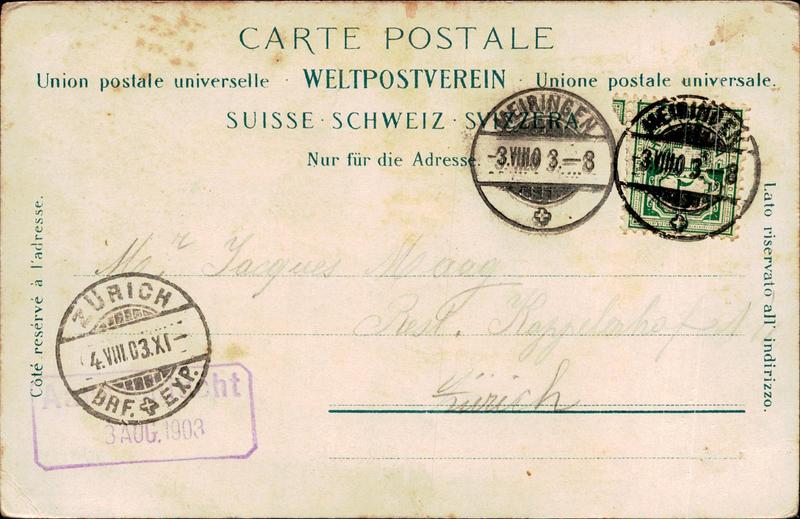 CARTE POSTALE
Union postale universelle · WELTPOSTVEREIN · Unione postale universale.
SUISSE · SCHWEIZ · SVIZZERA
Nur für die Adresse.
MEIRINGEN
-3.VIII.03.-8
MEIRINGEN
-3.VIII.03.-8
Côté reservé à l'adresse.
Lato riservato all' indirizzo.
Mr Jacques Maag
Rest.
Zürich
ZÜRICH
4.VIII.03.XI-
BRF. EXP.
3 AUG. 1903